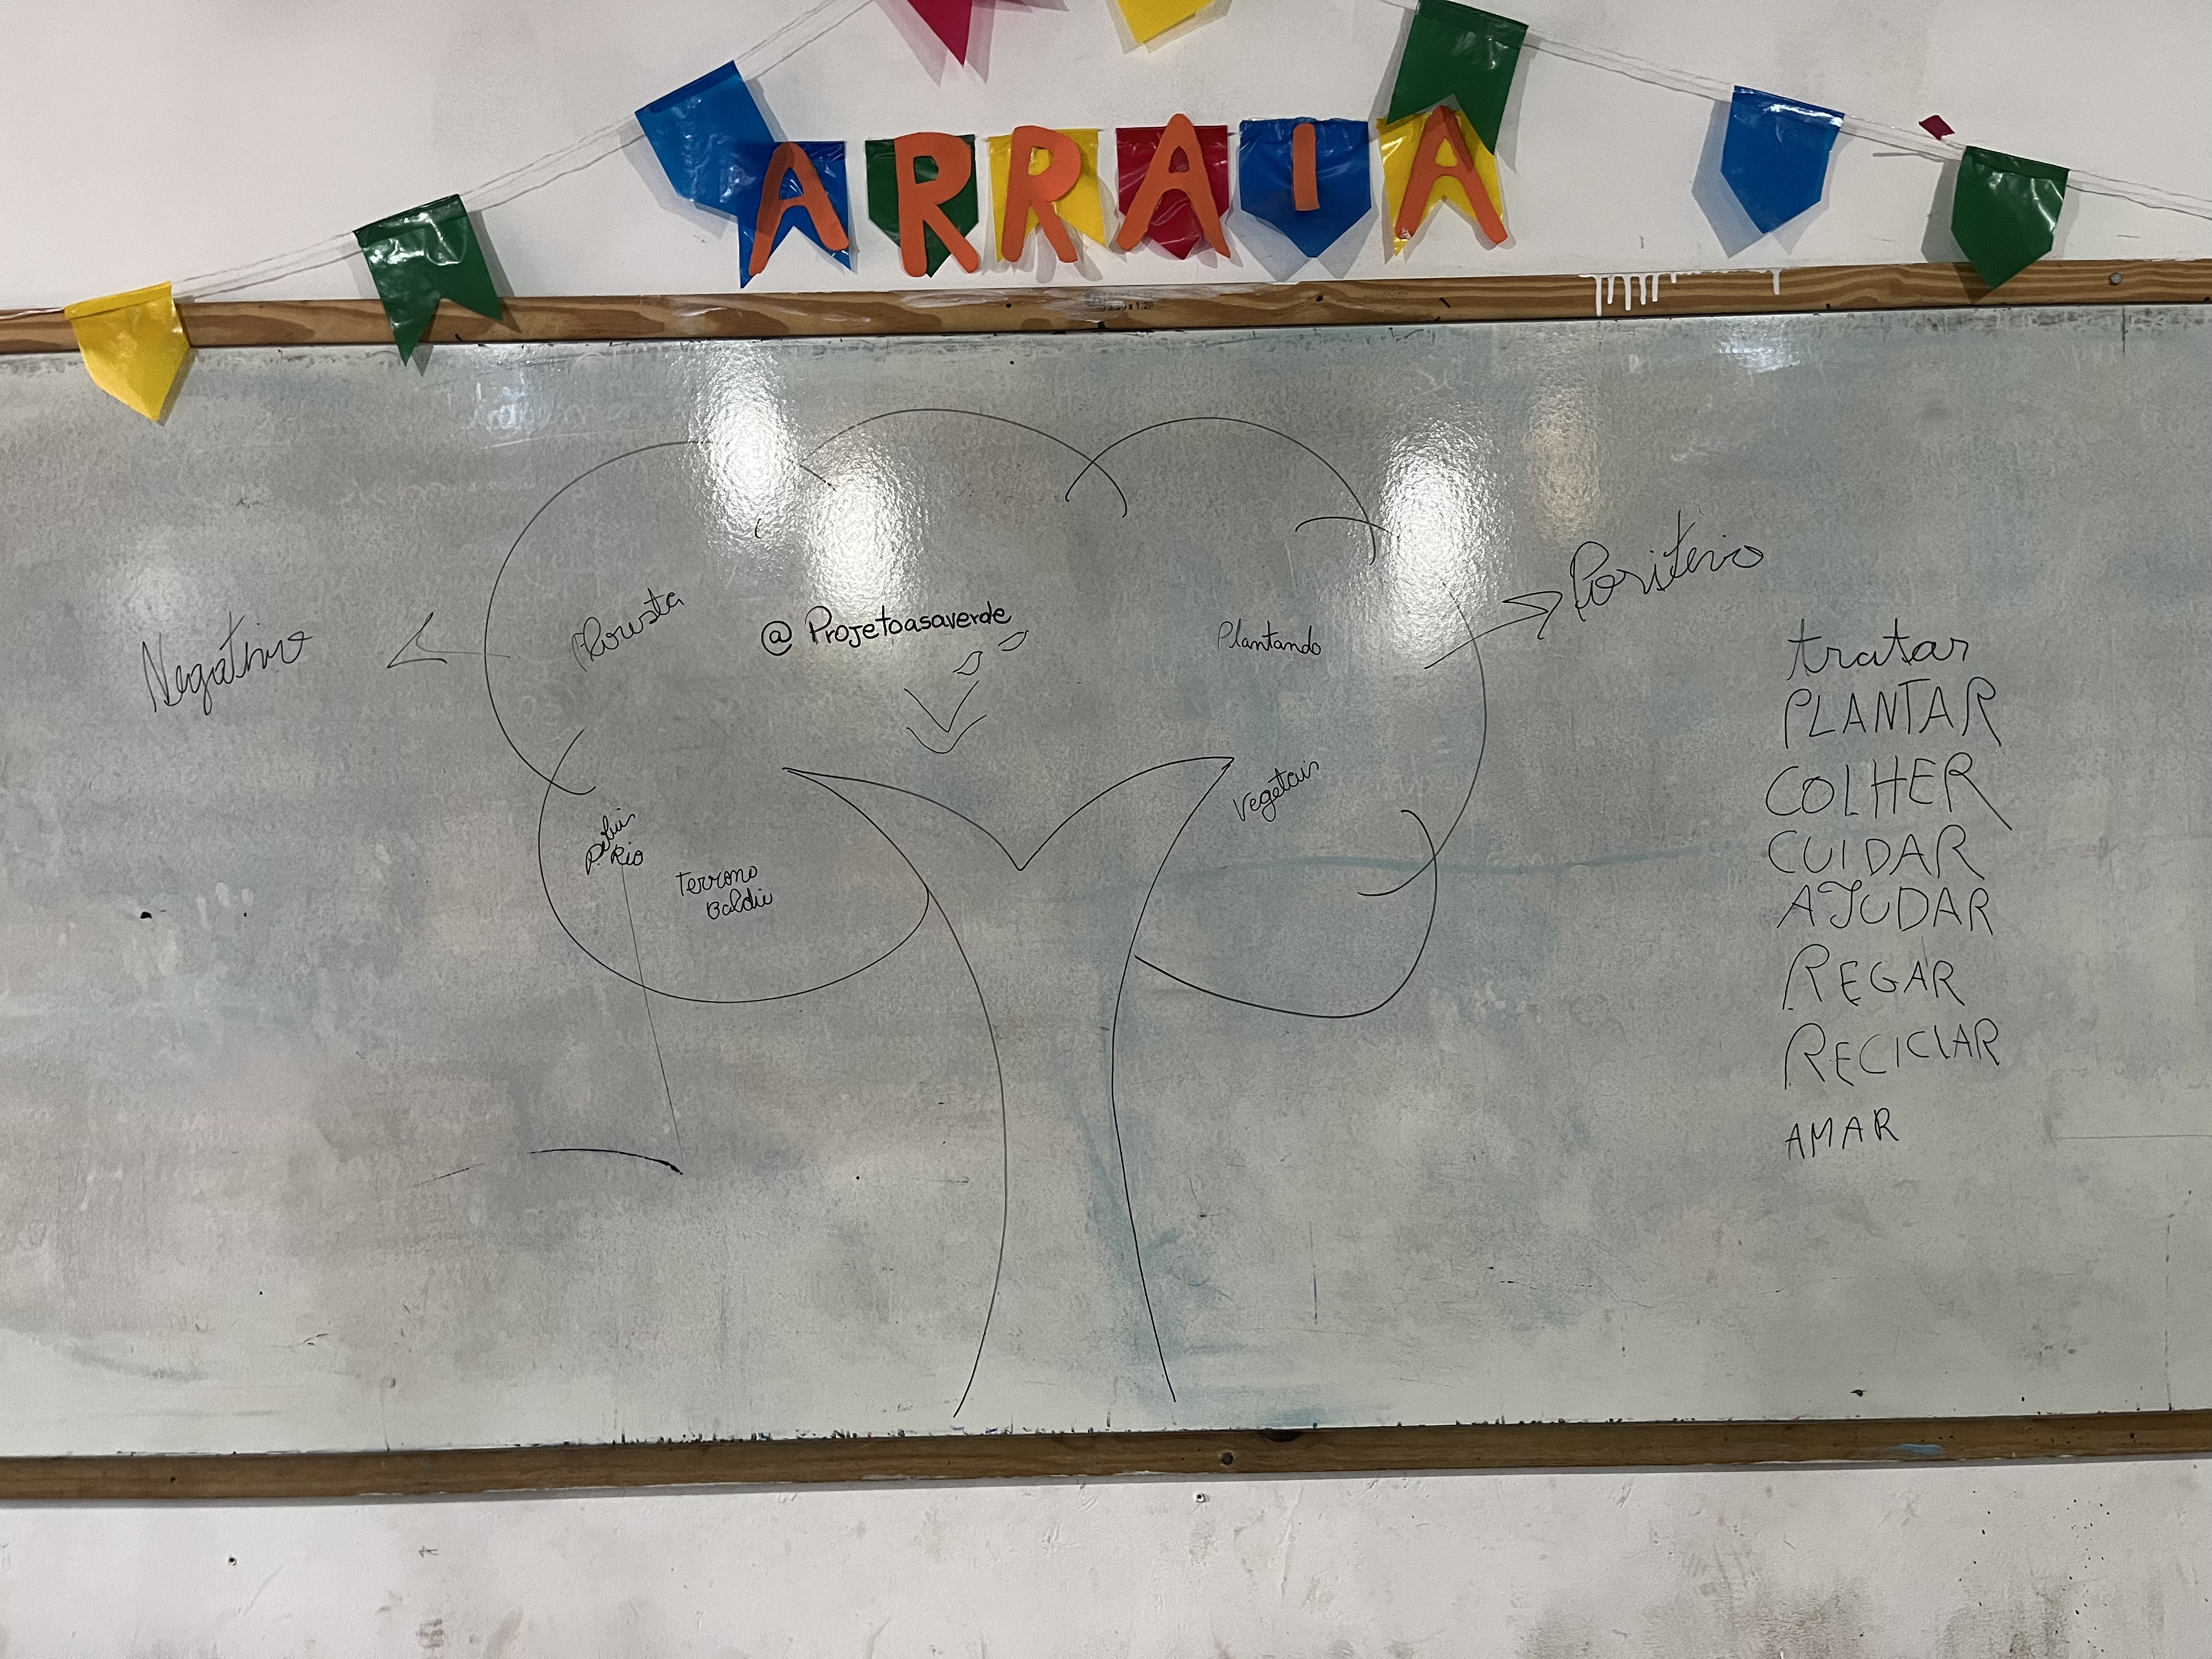 ARRAIA
Negativo
Floresta
@Projetoasaverde
Plantando
Positivo
Rio
Terreno
Baldiu
Vegetais
tratar
PLANTAR
COLHER
CUIDAR
AJUDAR
REGAR
RECICLAR
AMAR